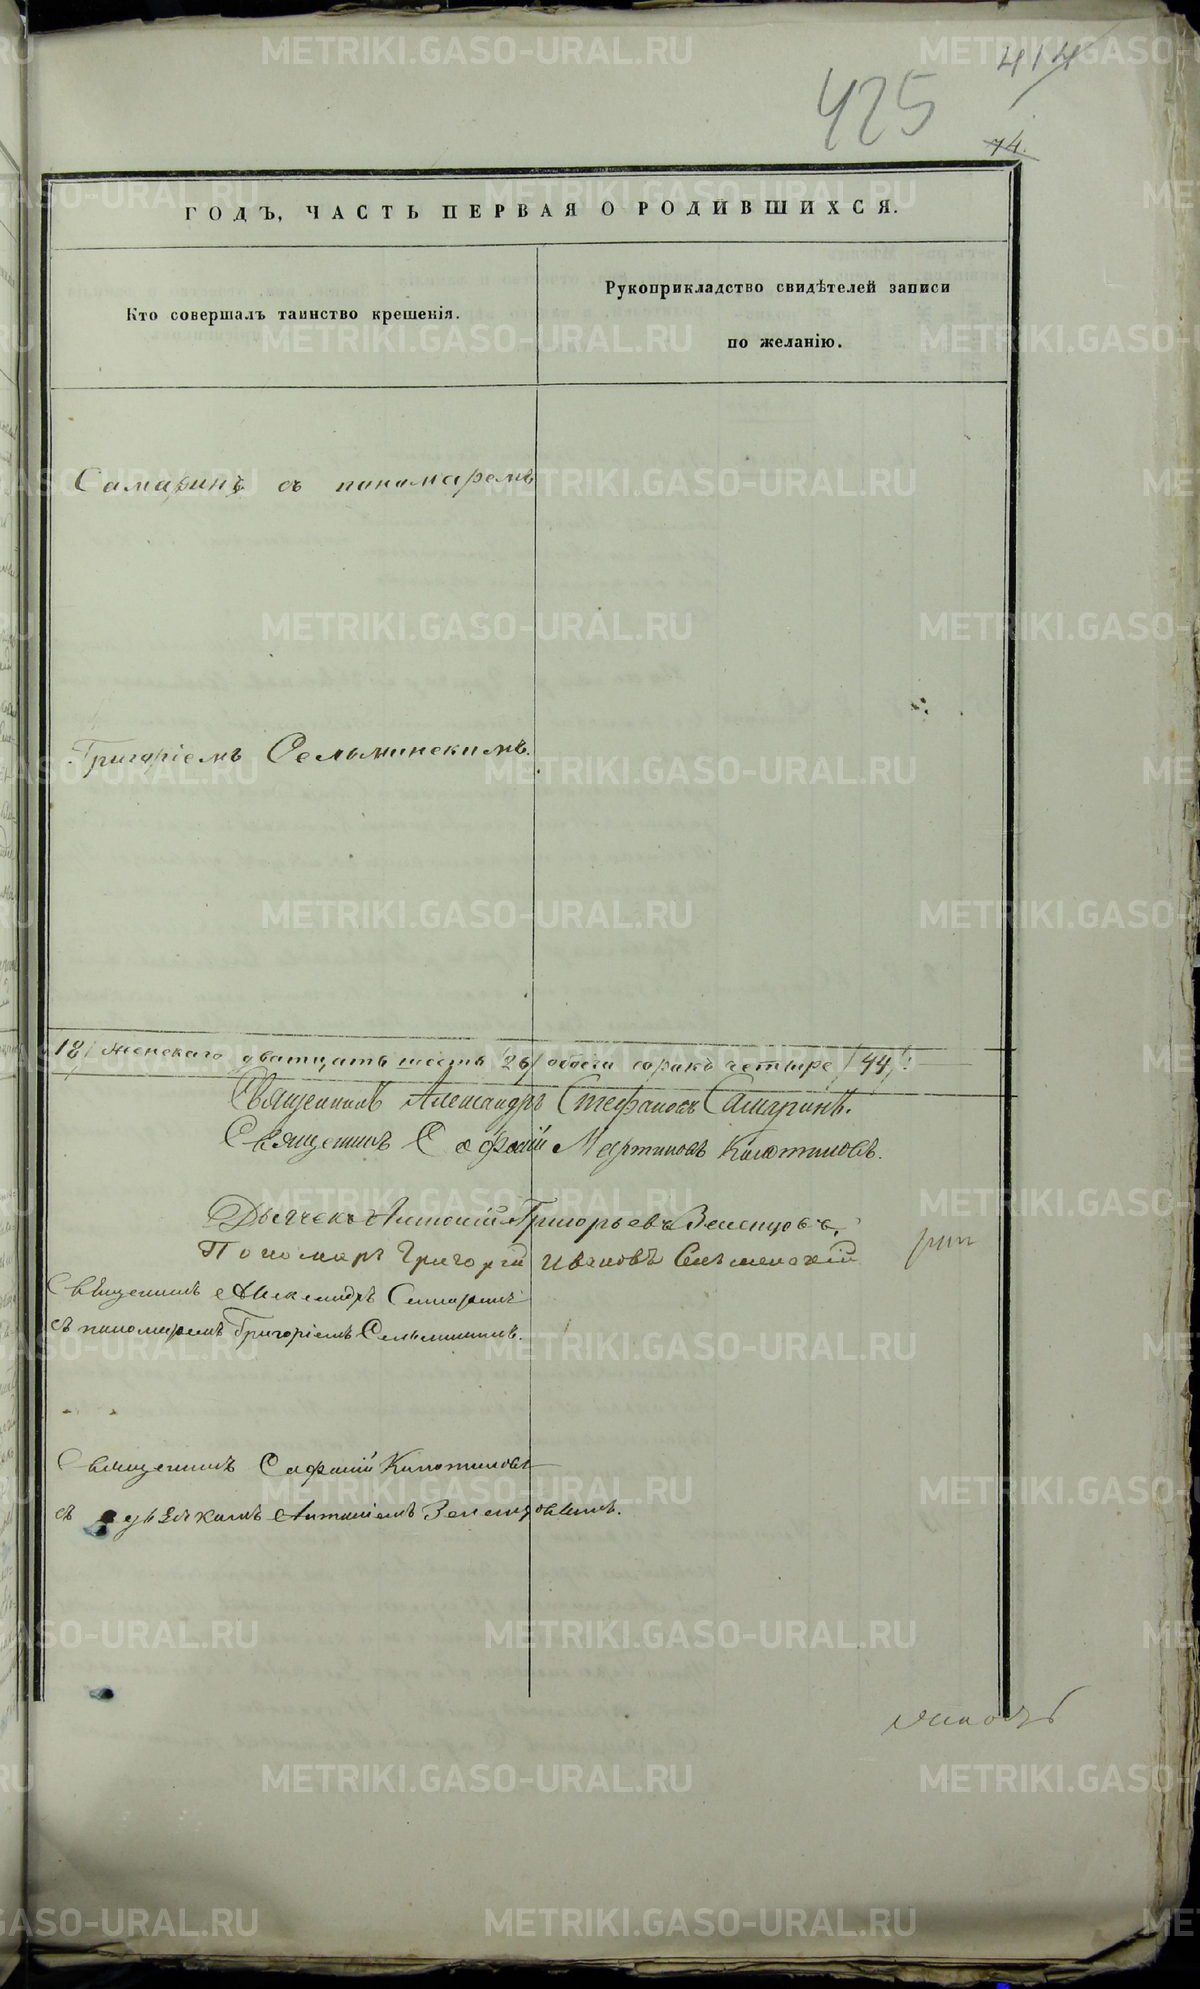 414
425
74.
ГОДЪ, ЧАСТЬ ПЕРВАЯ О РОДИВШИХСЯ.
Кто совершалъ таинство крещенія.
Рукоприкладство свидѣтелей записи
по желанію.
Самаринъ съ пономаремъ
Григоріемъ Сельминскимъ.
18/ женскаго дватцать шесть /26/ обоего сорокъ четыре /44/:
Священникъ Александръ Стефановъ Самаринъ.
Священникъ Софоній Мартиновъ Колотиловъ.
Дьячекъ Антоній Григорьевъ Зеленцовъ.
Пономарь Григорій Ивановъ Сельменскій
Священникъ Александръ Самаринъ
съ пономаремъ Григоріемъ Сельминскимъ.
Священникъ Софоній Колотиловъ
съ дьячкомъ Антоніемъ Зеленцовымъ.
METRIKI.GASO-URAL.RU